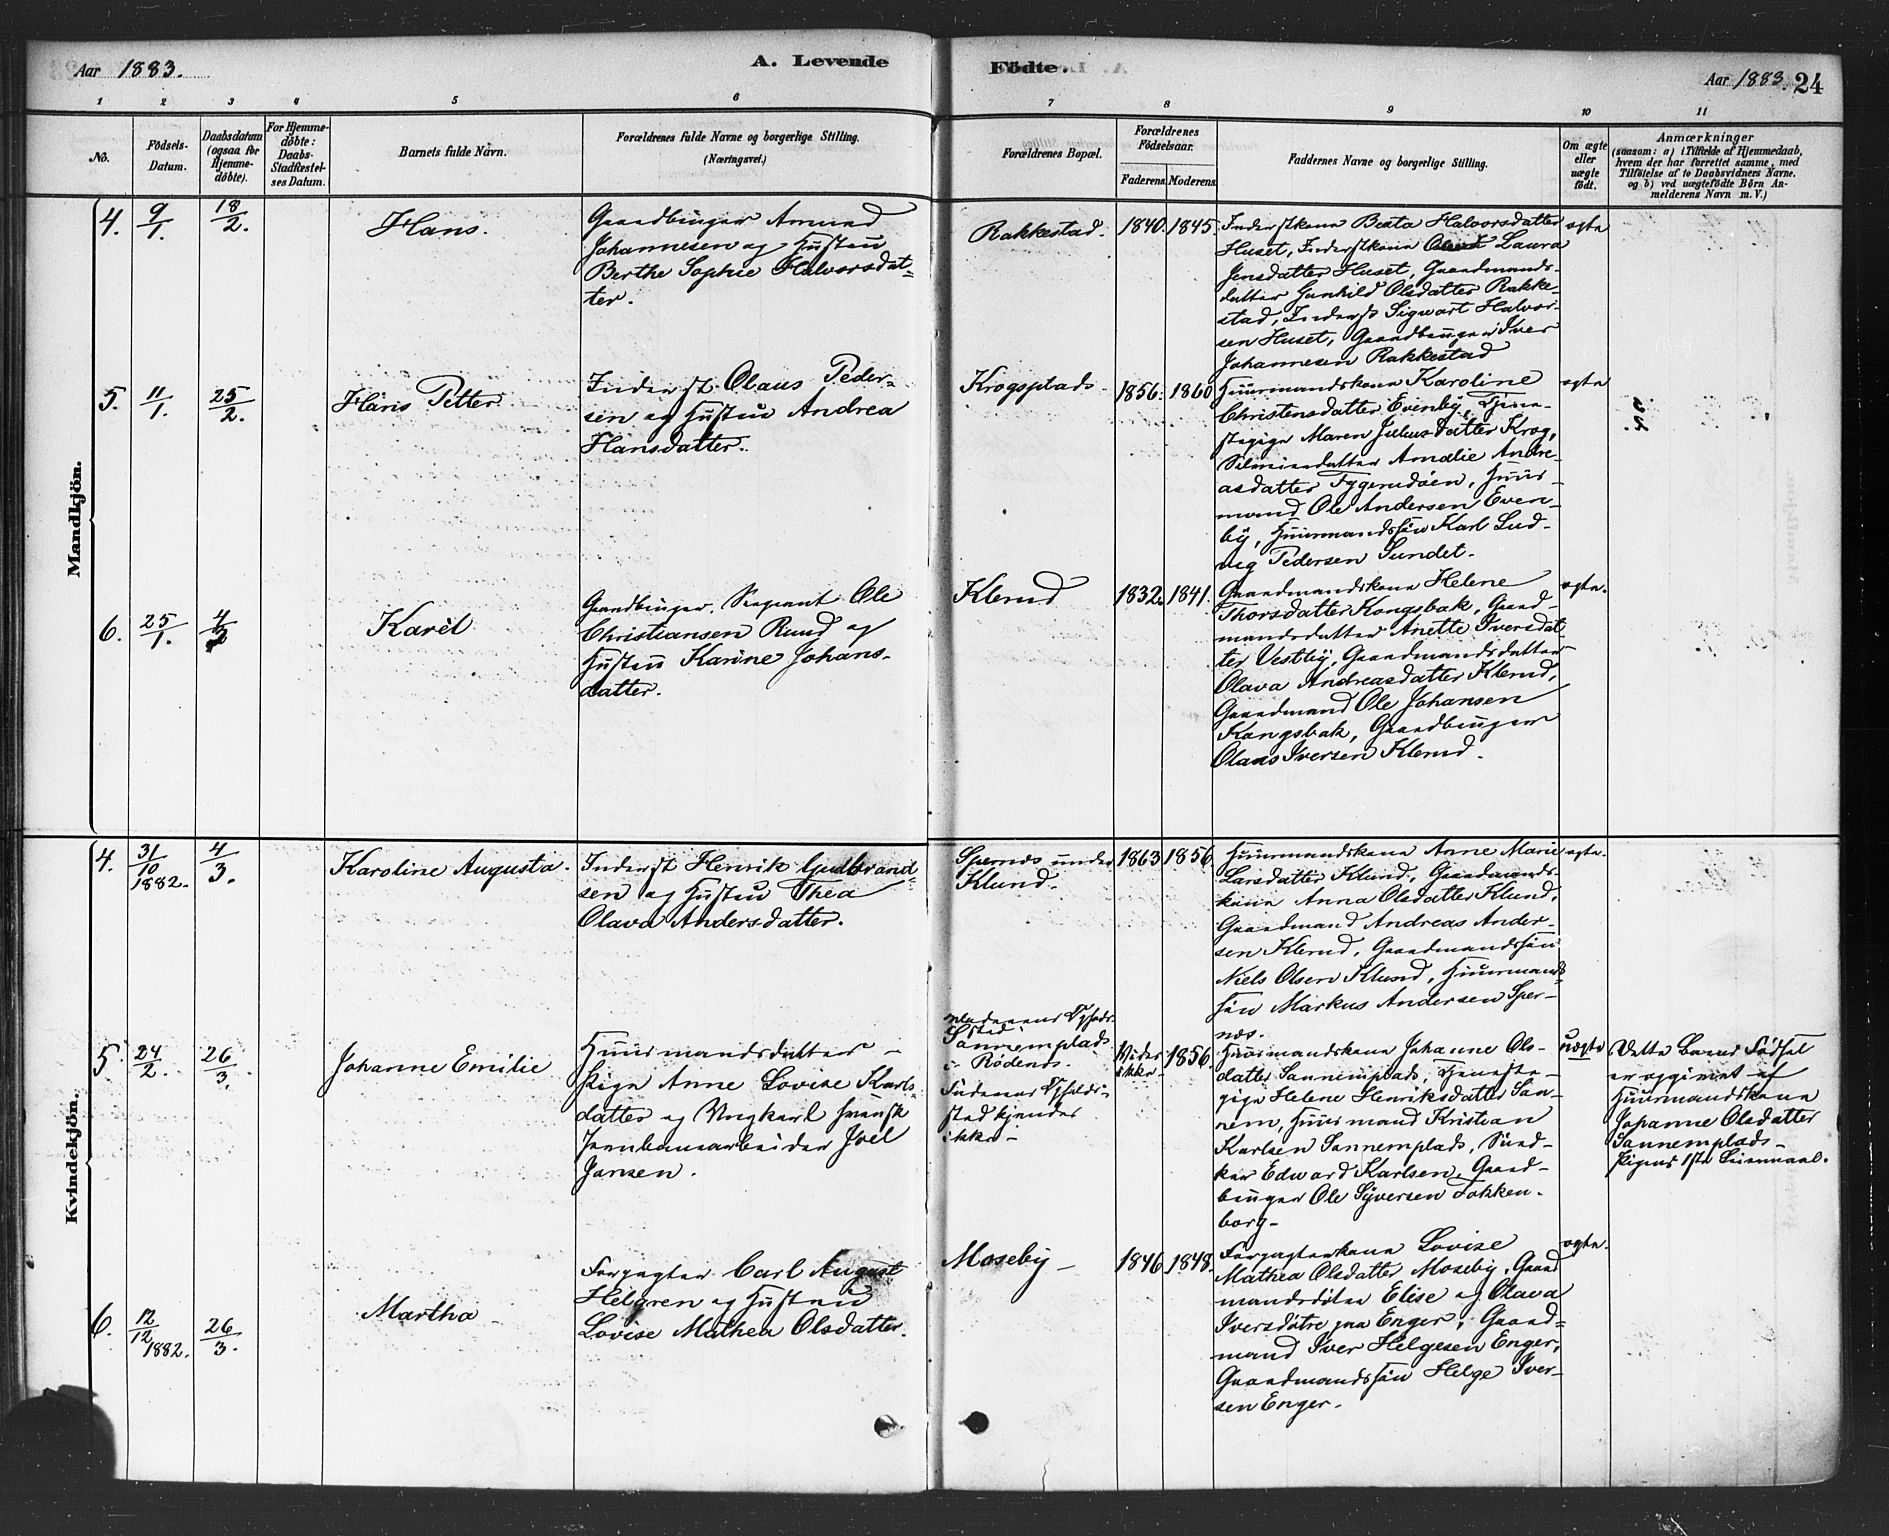 Aar 1883.
A. Levende
Födte.
Aar 1883. 24
1 2 3 4 5 6 7 8 9 10 11
No.
Födsels-Datum.
Daabsdatum (ogsaa for Hjemme-döbte).
For Hjemme-döbte: Daabs-Stadfæstel-ses Datum.
Barnets fulde Navn.
Forældrenes fulde Navne og borgerlige Stilling.
(Næringsvei.)
Forældrenes Bopæl.
Forældrenes Födselsaar.
Faderens. Moderens.
Faddernes Navne og borgerlige Stilling.
Om ægte eller uægte födt.
Anmærkninger
(saasom: a) i Tilfælde af Hjemmedaab,
hvem der har forrettet samme, med
Tilföielse af to Daabsvidners Navne.
og b) ved uægtefödte Börn An-
melderens Navn m. V.)
Mandkjön.
4. 9/1. 18/2.
Hans.
Gaardbruger Amund
Johannesen og Hustru
Berthe Sophie Halvorsdat-
ter.
Rakkestad.
1840. 1845.
Inderstkone Beata Halvorsdatter
Huset, Inderstkone Laura
Jensdatter Huset, Gaardmands-
datter Gunhild Olsdatter Rakke-
stad, Inderst Sigwart Halvor-
sen Huset, Gaardbruger Iver
Johannesen Rakkestad
ægte
5. 11/1. 25/2.
Hans Petter
Inderst Olaus Peder-
sen og Hustru Andrea
Hansdatter.
Krogsplads
1856. 1860
Huusmandskone Karoline
Christensdatter Evenby, Tjene-
stepige Maren Juliusdatter Krog,
datter Amalie Andre-
asdatter Tygerudöen, Huus-
mand Ole Andersen Even-
by, Huusmandssön Karl Lud-
vig Pedersen Sundet.
ægte
6. 25/1. 4/3
Karel
Gaardbruger, Sergeant Ole
Christiansen Ruud og
Hustru Karine Johans-
datter.
Klerud
1832. 1841.
Gaardmandskone Helene
Thorsdatter Kongsbak, Gaard-
mandsdatter Anette Iversdat-
ter Vestby, Gaardmandsdatter
Olava Andreasdatter Klerud,
Gaardmand Ole Johansen
Kongsbak, Gaardbruger
Olaus Iversen Klerud.
ægte.
Kvindekjön.
4. 31/10 1882. 4/3.
Karoline Augusta.
Inderst Henrik Gudbrand-
sen og Hustru Thea
Olava Andersdatter.
Spernæs under
Klund.
1863 1856
Huusmandskone Anne Marie
Larsdatter Klund, Gaardmands-
kone Anna Olsdatter Klund,
Gaardmand Andreas Ander-
sen Klerud, Gaardmandssön
Niels Olsen Klund, Huusmands-
sön Markus Andersen Sper-
næs.
ægte.
5. 24/2. 26/3.
Johanne Emilie
Huusmandsdatter –
Pige Anne Lovise Karls-
datter og Ungkarl svensk
Jernbanearbeider Joel
Jansen.
Moderens Opholds-
sted
Sannemplads
i Rödenes.
Faderens Opholds-
sted kjendes
ikke –
Vides
ikke
1856
Huusmandskone Johanne Ols-
datter Sannemplads, Tjeneste-
pige Helene Henriksdatter San-
nem, Huusmand Kristian
Karlsen Sannemplads,
Edward Karlsen, Gaard-
bruger Ole Syversen Fokken-
borg –
uægte
Dette Barns Födsel
er opgivet af
Huusmandskone
Johanne Olsdatter
Sannemplads –
Pigens 1ste Leiermaal.
6. 12/12 1882. 26/3.
Martha –
Forpagter Carl August
Helgren og Hustru
Lovise Mathea Olsdatter.
Moseby –
1846 1848.
Forpagterkone Lovise
Mathea Olsdatter Moseby, Gaard
mandsdötre Elise og Olava
Iversdötre paa Enger, Gaard-
mand Iver Helgesen Enger,
Gaardmandssön Helge Iver-
sen Enger.
ægte.